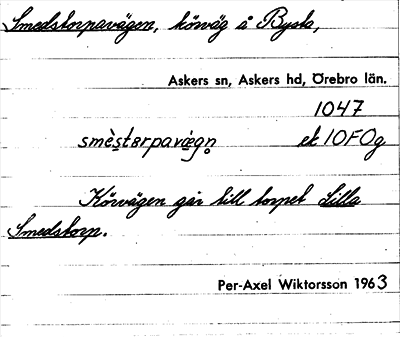 Smedstorpavägen, körväg å Bysta,
Askers sn, Askers hd, Örebro län.
1047
smèstɐrpavæ̀gn̥ ek 10F0g
Körvägen går till torpet Lilla
Smedstorp.
Per-Axel Wiktorsson 1963